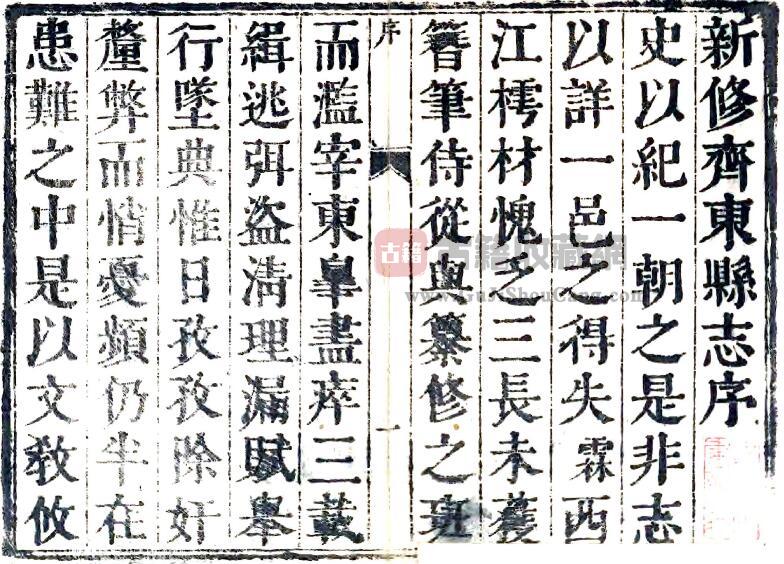 新修齊東縣志序
史以紀一朝之是非志
以詳一邑之得失霖西
江樗材愧乏三長未獲
簪筆侍從與纂修之班
序
一
而濫宰東皐盡瘁三載
緝逃弭盜清理漏賦舉
行墜典惟日孜孜除奸
釐弊而悄憂頻仍半在
患難之中是以文教攸
古籍
古籍收藏網
www.GuJiShouCang.com